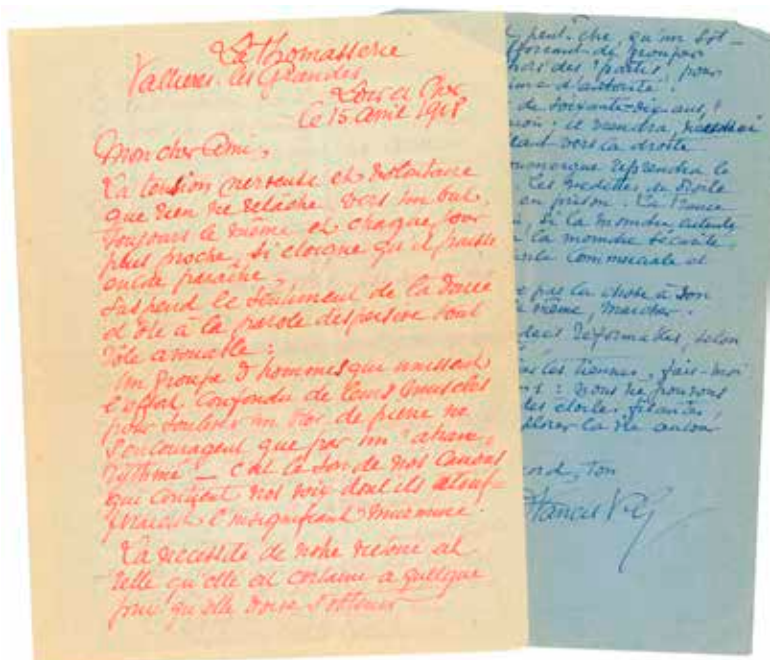 La Thomasserie
Vallières-les-Grandes
Loir et Cher
le 15 avril 1918
Mon cher Ami,
La tension nerveuse et volontaire
que rien ne relâche vers un but,
toujours le même et chaque jour
plus proche, si éloigné qu'il puisse
encore paraître
suspend le sentiment de la durée
et ôte à la parole dispersive tout
rôle avouable :
Un groupe d'hommes qui unissent
l'effort confondu de leurs muscles
pour soulever un bloc de pierre ne
s'encouragent que par un
rythmé — c'est le son de nos canons
qui contient nos voix dont ils
l'insignifiant murmure.
La nécessité de notre victoire est
telle qu'elle est certaine à quelque
prix qu'elle doive s'obtenir
peut-être, qu'un
de grouper
des "partis" pour
d'autorité.
de soixante-dix ans,
il viendra,
vers la droite
reprendra le
Les vedettes de droite
en prison. La France
si la moindre entente,
la moindre sécurité,
commerciale et
pas la chose à son
même, marcher.
réformables, selon
les tiennes, fais-moi
: nous ne pouvons
des étoiles filantes,
la vie autour
ton